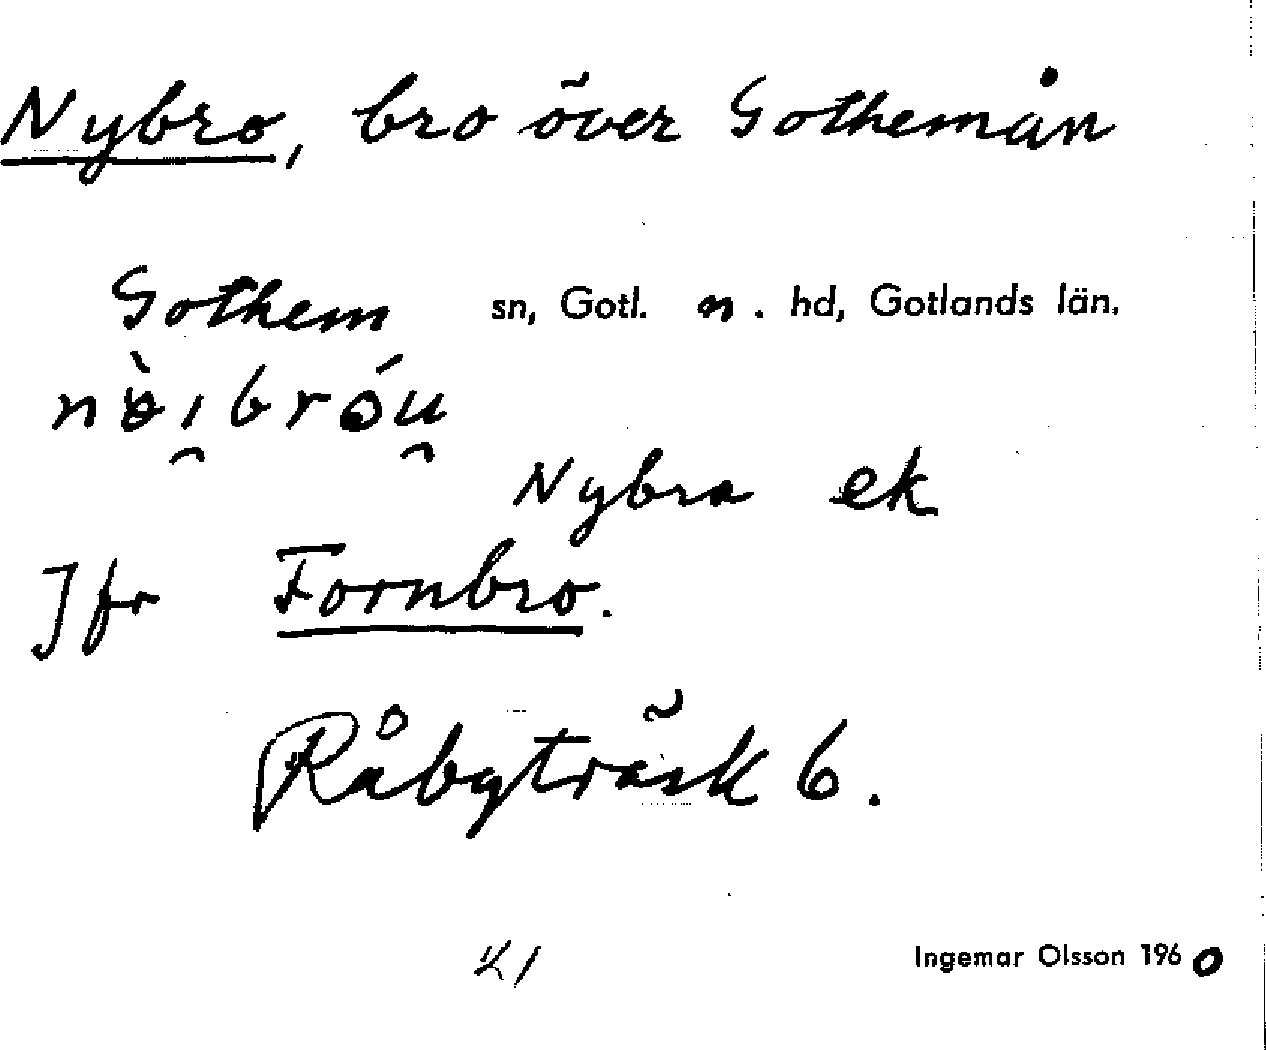 Nybro, bro över Gothemån
Gothem sn, Gotl. n. hd, Gotlands län.
nɵ̀i̯bróu̯
Nybro ek
Jfr Fornbro.
Råbyträsk 6.
Ingemar Olsson 1960